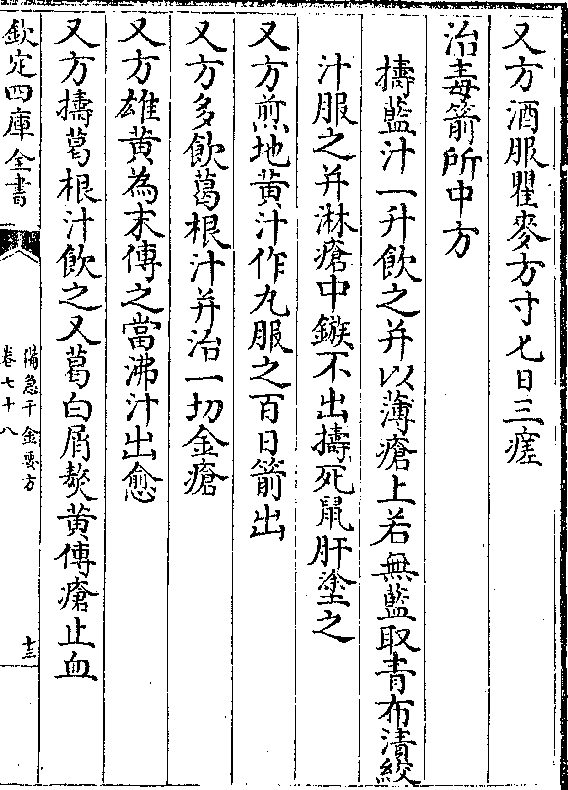 又方酒服瞿麥方寸匕日三瘥
治毒箭所中方
擣藍汁一升飲之并以薄瘡上若無藍取青布漬絞
汁服之并淋瘡中鏃不出擣死鼠肝塗之
又方煎地黄汁作丸服之百日箭出
又方多飲葛根汁并治一切金瘡
又方雄黄為末傅之當沸汁出愈
又方擣葛根汁飲之又葛白屑熬黄傅瘡止血
欽定四庫全書
備急千金要方
卷七十八
十三